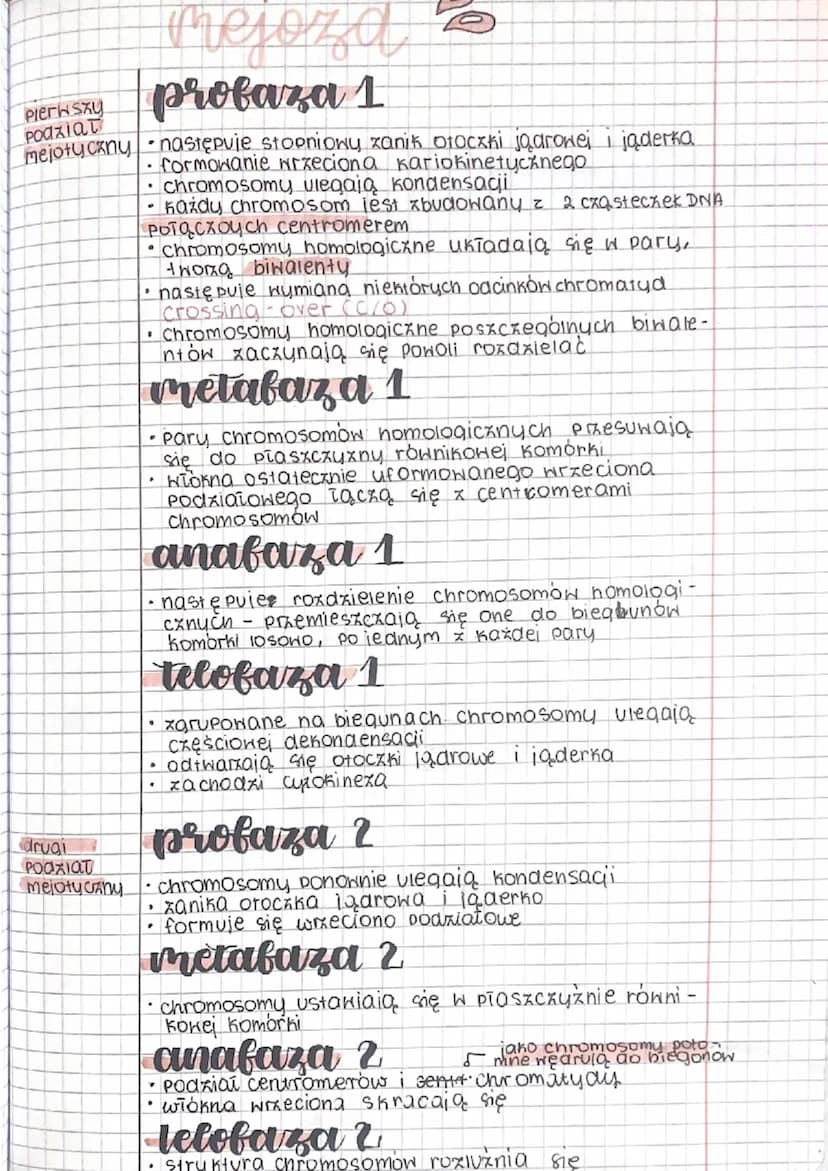 mejoza
pierwszy
podział
mejotyczny
profaza 1
• następuje stopniowy zanik otoczki jądrowej i jąderka
• formowanie wrzeciona kariokinetycznego
• chromosomy ulegają kondensacji
• każdy chromosom jest zbudowany z 2 cząsteczek DNA
połączoych centromerem
• chromosomy homologiczne układają się w pary,
tworzą biwalenty
• następuje wymiana niektórych odcinków chromatyd
crossing-over (C/O)
• chromosomy homologiczne poszczególnych biwale-
ntów zaczynają się powoli rozdzielać
metafaza 1
• pary chromosomów homologicznych przesuwają
się do płaszczyzny równikowej komórki
• włókna ostatecznie uformowanego wrzeciona
podziałowego łączą się z centromerami
chromosomów
anafaza 1
• następuje rozdzielenie chromosomów homologi-
cznych - przemieszczają się one do biegunów
komórki losowo, po jednym z każdej pary
telofaza 1
• zgrupowane na biegunach chromosomy ulegają
częściowej dekondensacji
• odtwarzają się otoczki jądrowe i jąderka
• zachodzi cytokineza
drugi
podział
mejotyczny
profaza 2
• chromosomy ponownie ulegają kondensacji
• zanika otoczka jądrowa i jąderko
• formuje się wrzeciono podziałowe
metafaza 2
• chromosomy ustawiają się w płaszczyźnie równi-
kowej komórki
anafaza 2
jako chromosomy poto-
mne wędrują do biegonów
• podział centromerów i chromatydy
• włókna wrzeciona skracają się
telofaza 2
• struktura chromosomów rozluźnia się